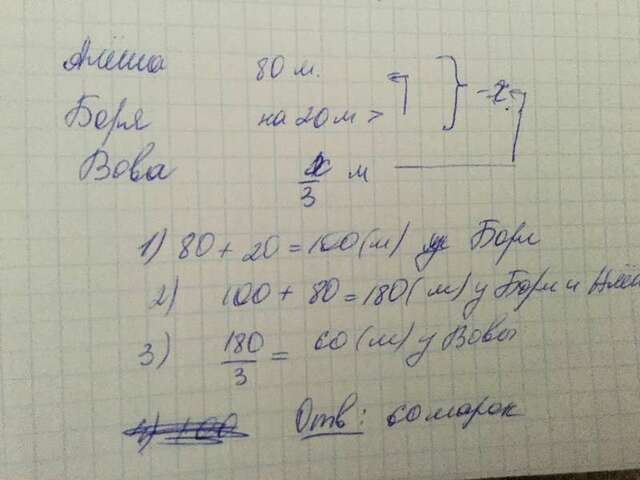 Алёша 80 м.
Боря на 20 м >
} - x
Вова x/3 м
1) 80 + 20 = 100 (м) у Бори
2) 100 + 80 = 180 (м) у Бори и Алёш
3) 180/3 = 60 (м) у Вовы
4) 100
Отв: 60 марок